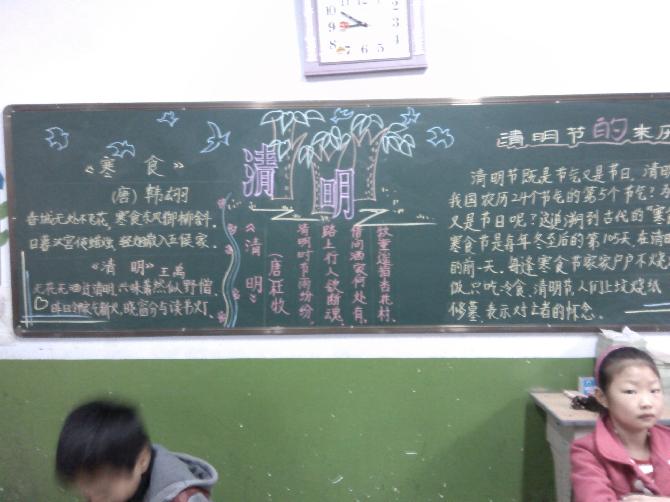 《寒食》
(唐)韩翃
春城无处不飞花,寒食东风御柳斜.
日暮汉宫传蜡烛,轻烟散入五侯家.
《清明》王禹
无花无酒过清明,兴味萧然似野僧.
昨日邻家乞新火,晓窗分与读书灯.
清明
《清明》
(唐)杜牧
清明时节雨纷纷,
路上行人欲断魂,
借问酒家何处有,
牧童遥指杏花村.
清明节的来历
清明节既是节气又是节日,清明
我国农历24个节气的第5个节气?
又是节日呢?这追溯到古代的"寒
寒食节是每年冬至后的第105天,在清
的前一天.每逢寒食节家家户户不烧
做.只吃冷食.清明节人们上坟烧纸
修墓,表示对亡者的怀念.
10
9
8
7
6
5
4
3
2